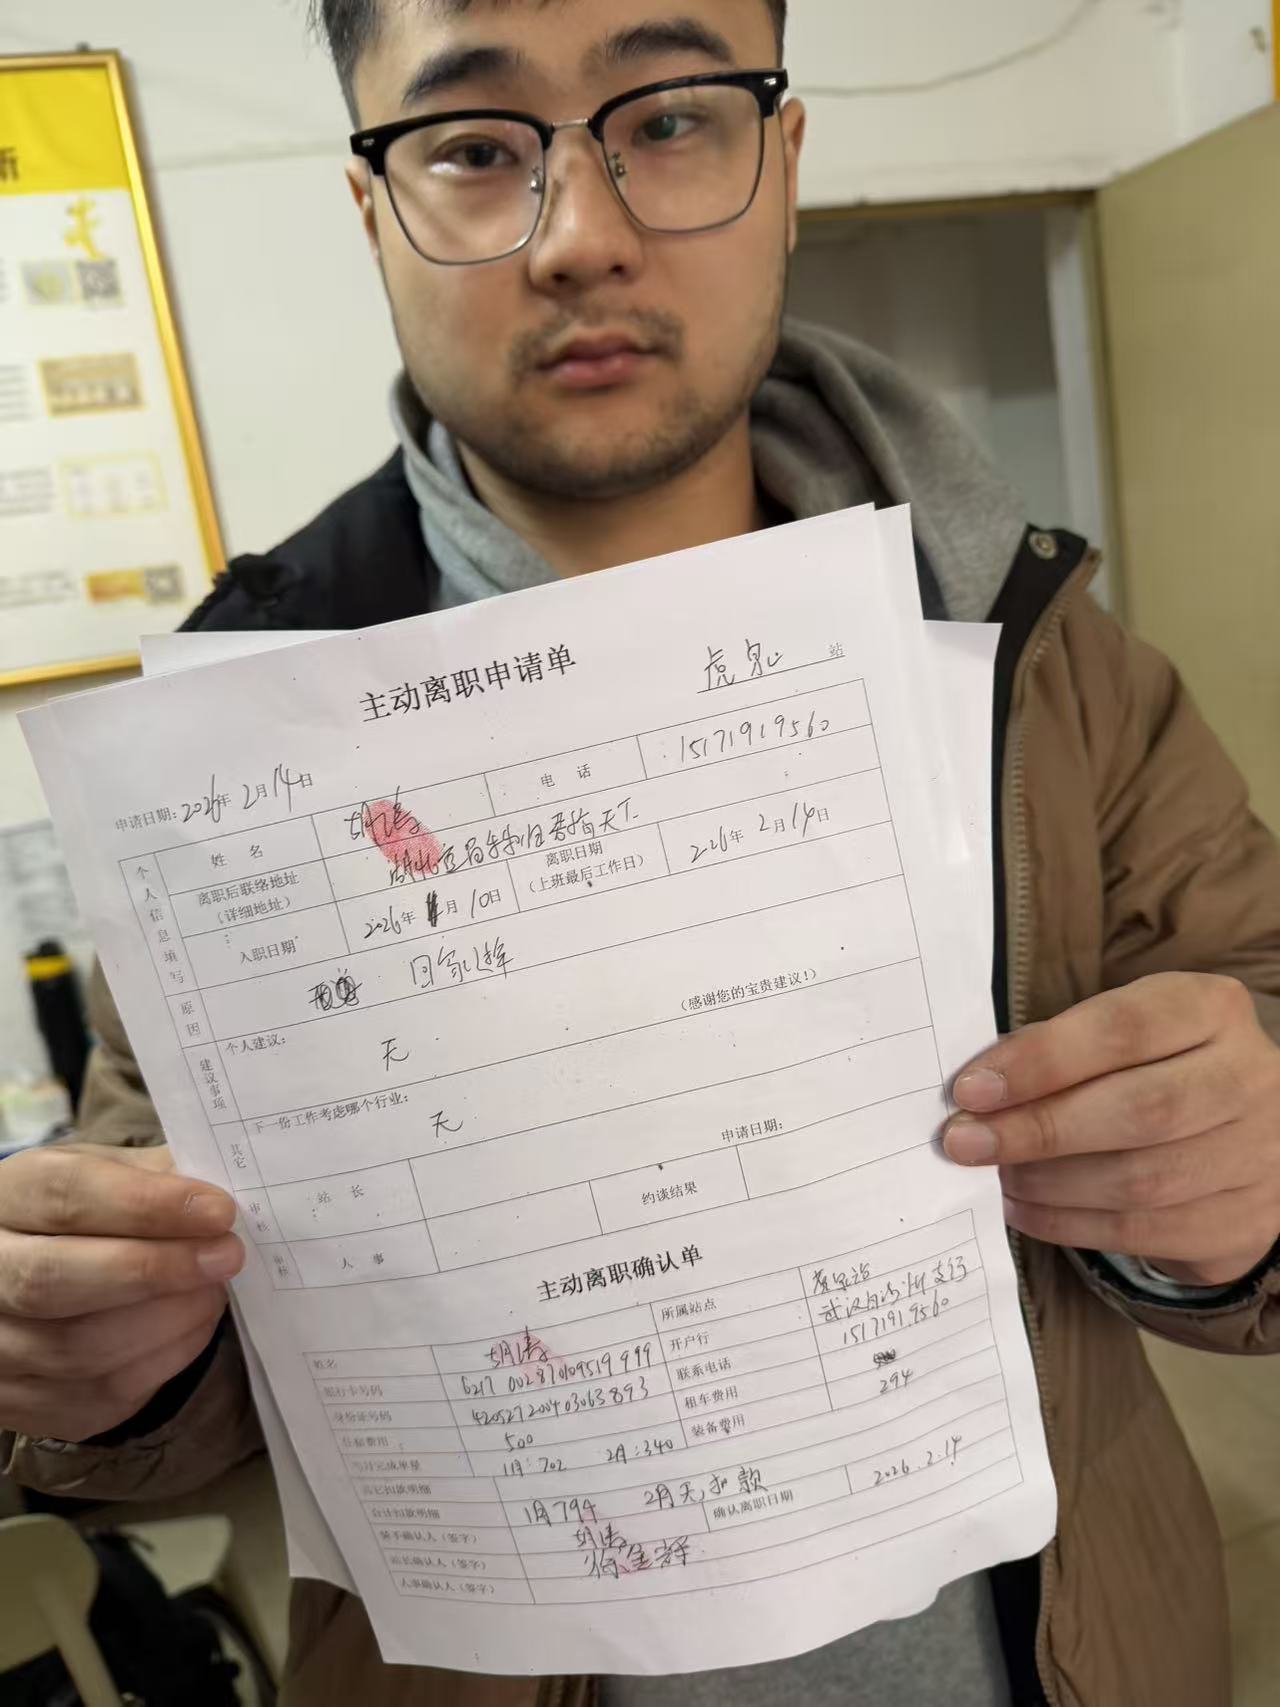 主动离职申请单
虎泉 站
申请日期: 2026年 2月 14日
个人信息填写
姓 名 胡涛 电 话 15171919560
离职后联络地址
(详细地址)
入职日期 2026年 1月 10日
离职日期
(上班最后工作日)
2026年 2月 14日
原因 回家过年
建议事项 个人建议: 无
(感谢您的宝贵建议!)
其它 下一份工作考虑哪个行业: 无
申请日期:
审核 站 长 约谈结果
审核 人 事
主动离职确认单
姓名 胡涛 所属站点 虎泉站
银行卡号码 6217 002870109519999 开户行 武汉 支行
身份证号码 420527200403063893 联系电话 15171919560
住宿费用 500 租车费用
当月完成单量 1月: 702 2月: 340 装备费用 294
其它扣款明细
合计扣款明细 1月 794 2月无扣款
骑手确认人(签字) 胡涛 确认离职日期 2026.2.14
站长确认人(签字)
人事确认人(签字)